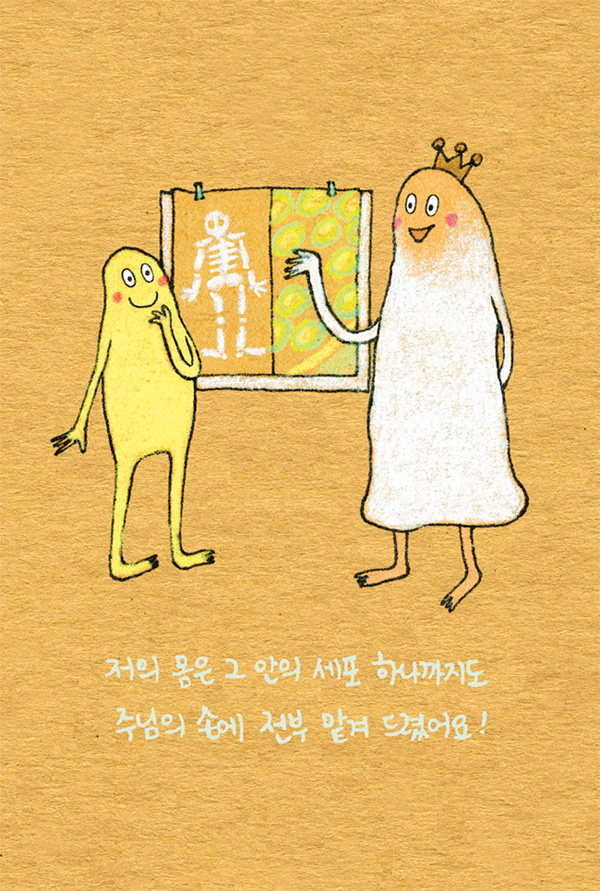 저의 몸은 그 안의 세포 하나까지도
주님의 손에 전부 맡겨 드렸어요!